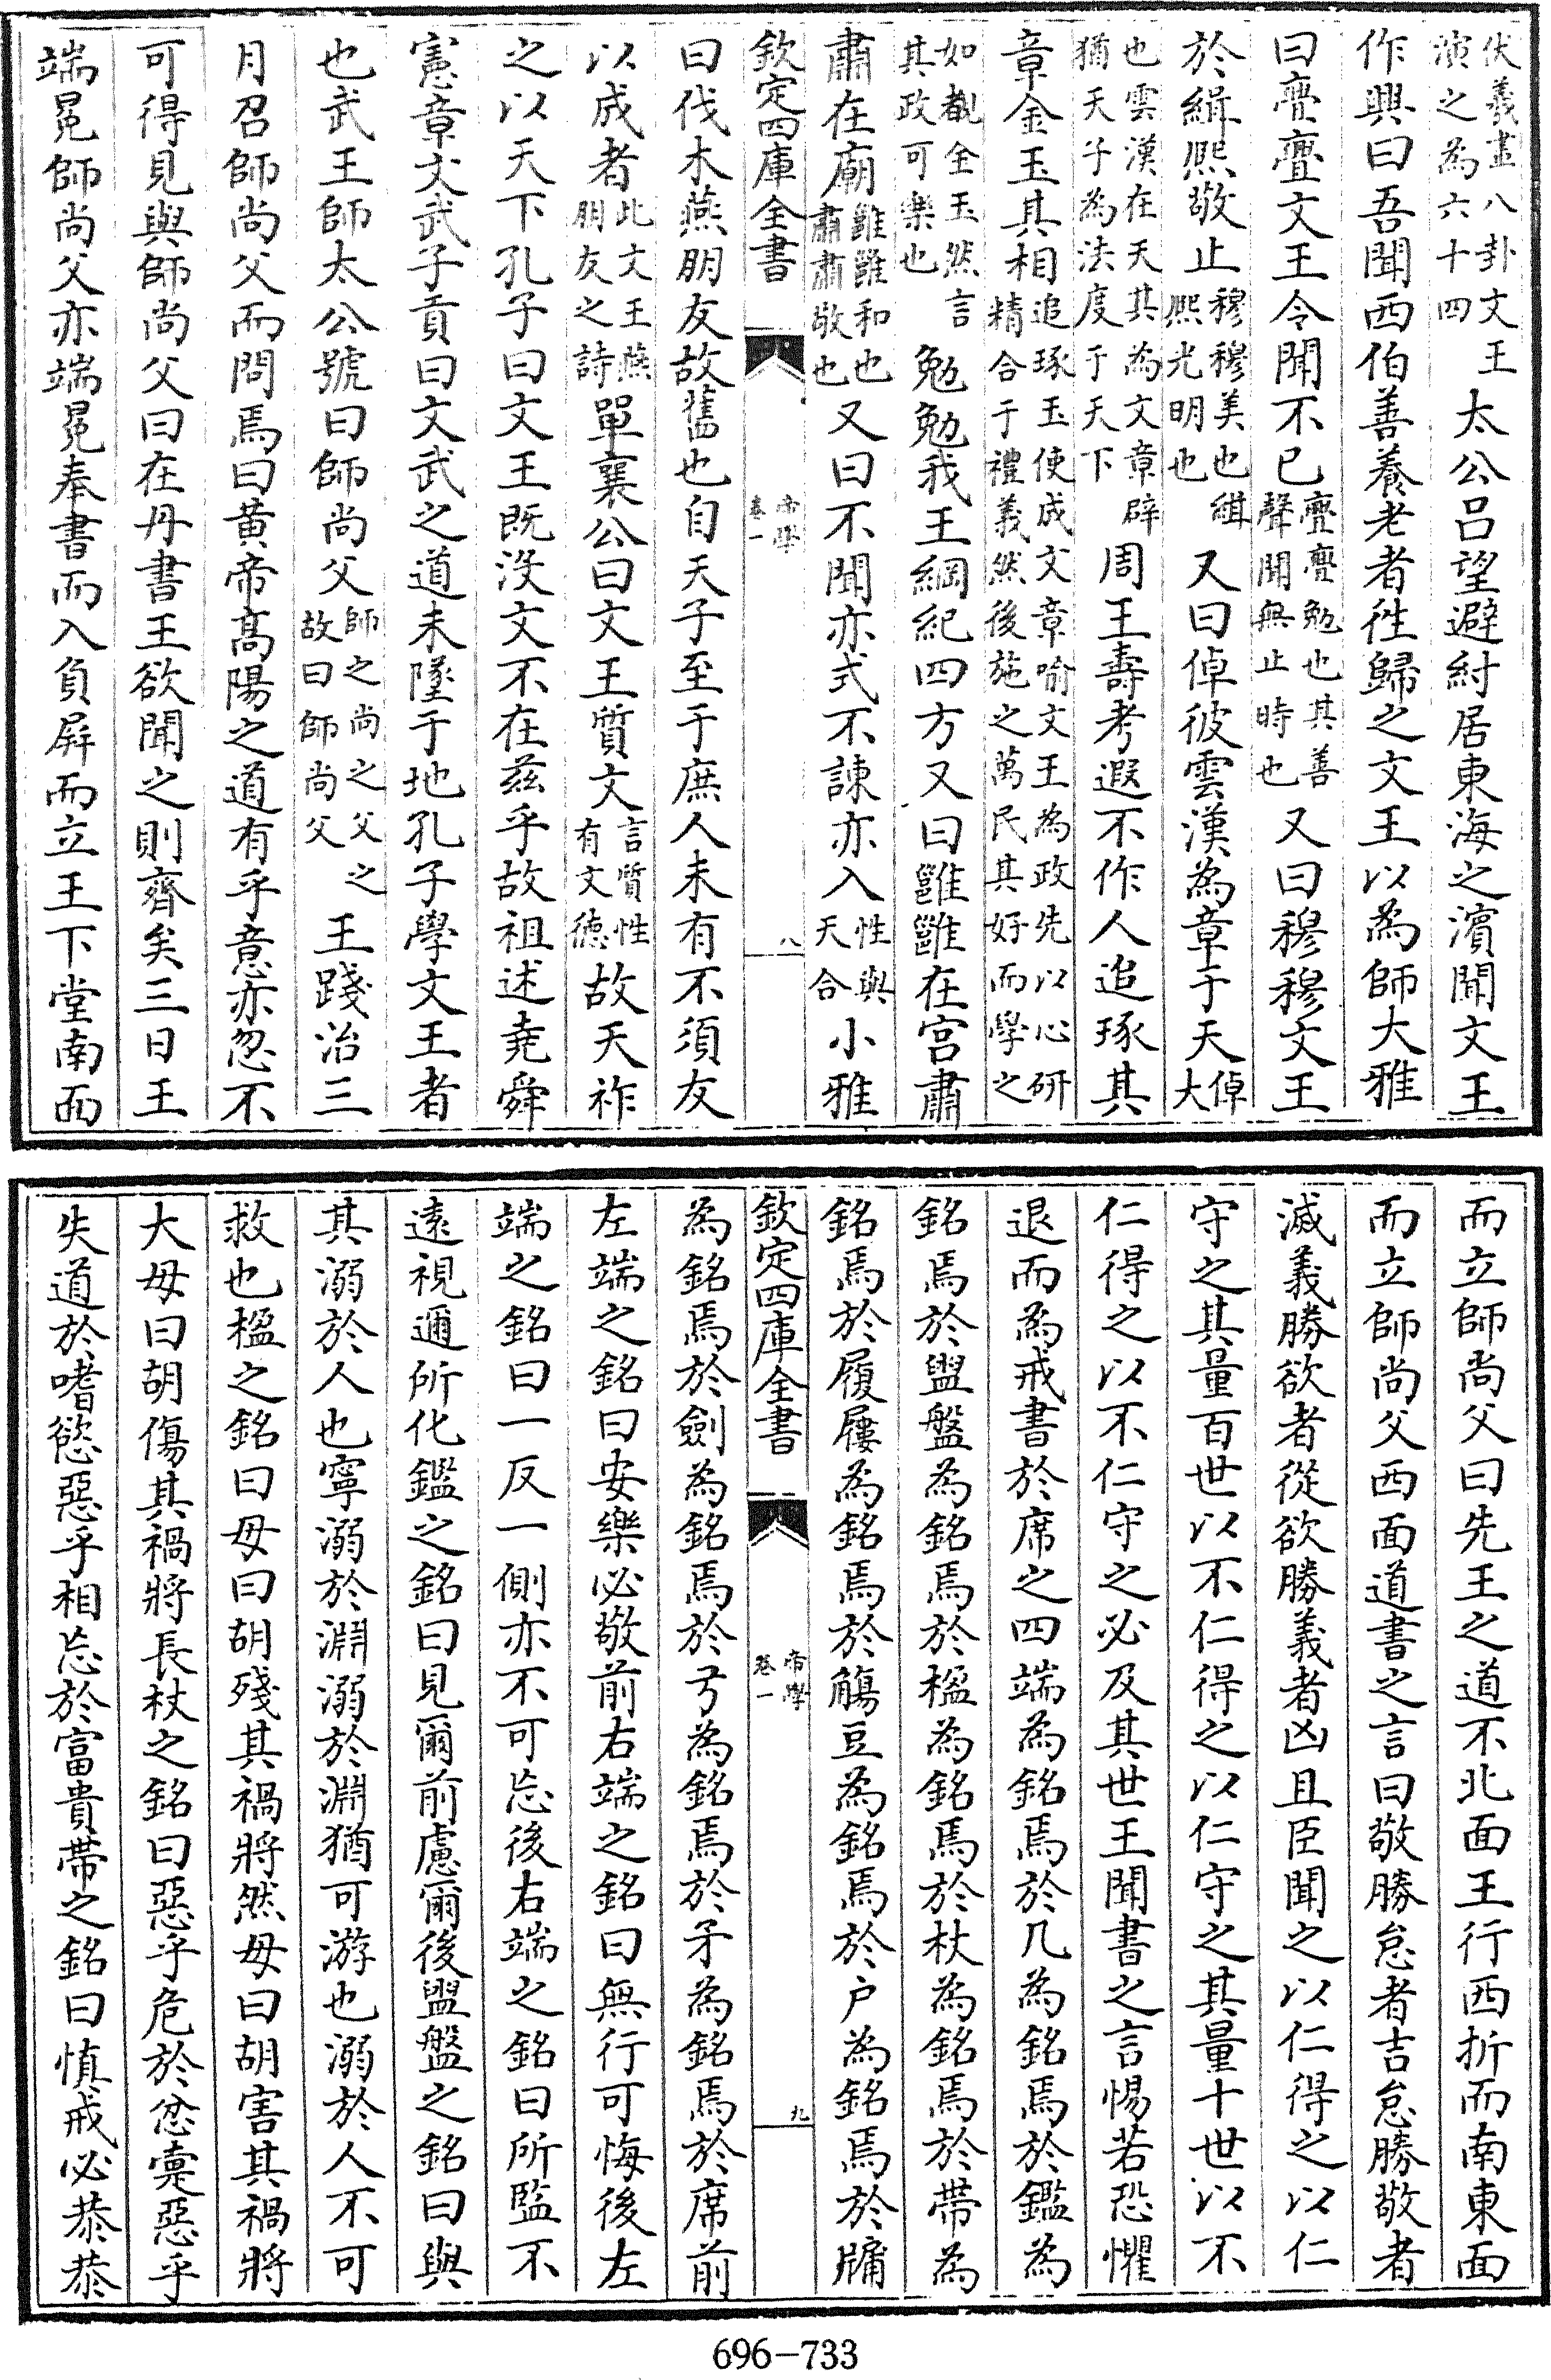 伏羲畫八卦文王演之為六十四太公呂望避紂居東海之濱聞文王
作興曰吾聞西伯善養老者徃歸之文王以為師大雅
曰亹亹文王令聞不已亹亹勉也其善聲聞無止時也又曰穆穆文王
於緝熙敬止穆穆美也緝熙光明也又曰倬彼雲漢為章于天倬大
也雲漢在天其為文章辟猶天子為法度于天下周王壽考遐不作人追琢其
章金玉其相追琢玉使成文章喻文王為政先以心研精合于禮義然後施之萬民其好而學之
如覩金玉然言其政可樂也勉勉我王綱紀四方又曰雝雝在宫肅
肅在廟雝雝和也肅肅敬也又曰不聞亦式不諫亦入性與天合小雅
欽定四庫全書 帝學 卷一 八
曰伐木燕朋友故舊也自天子至于庶人未有不須友
以成者此文王燕朋友之詩單襄公曰文王質文言質性有文德故天祚
之以天下孔子曰文王既没文不在兹乎故祖述堯舜
憲章文武子貢曰文武之道未墜于地孔子學文王者
也武王師太公號曰師尚父師之尚之父之故曰師尚父王踐治三
月召師尚父而問焉曰黄帝髙陽之道有乎意亦忽不
可得見與師尚父曰在丹書王欲聞之則齊矣三日王
端冕師尚父亦端冕奉書而入負屏而立王下堂南面
而立師尚父曰先王之道不北面王行西折而南東面
而立師尚父西面道書之言曰敬勝怠者吉怠勝敬者
滅義勝欲者從欲勝義者凶且臣聞之以仁得之以仁
守之其量百世以不仁得之以仁守之其量十世以不
仁得之以不仁守之必及其世王聞書之言惕若恐懼
退而為戒書於席之四端為銘焉於几為銘焉於鑑為
銘焉於盥盤為銘焉於楹為銘焉於杖為銘焉於帶為
銘焉於履屨為銘焉於觴豆為銘焉於户為銘焉於牖
欽定四庫全書 帝學 卷一 九
為銘焉於劍為銘焉於弓為銘焉於矛為銘焉於席前
左端之銘曰安樂必敬前右端之銘曰無行可悔後左
端之銘曰一反一側亦不可忘後右端之銘曰所監不
遠視邇所化鑑之銘曰見爾前慮爾後盥盤之銘曰與
其溺於人也寧溺於淵溺於淵猶可游也溺於人不可
救也楹之銘曰毋曰胡殘其禍將然毋曰胡害其禍將
大毋曰胡傷其禍將長杖之銘曰惡乎危於忿疐惡乎
失道於嗜慾惡乎相忘於富貴帶之銘曰慎戒必恭恭
696-733